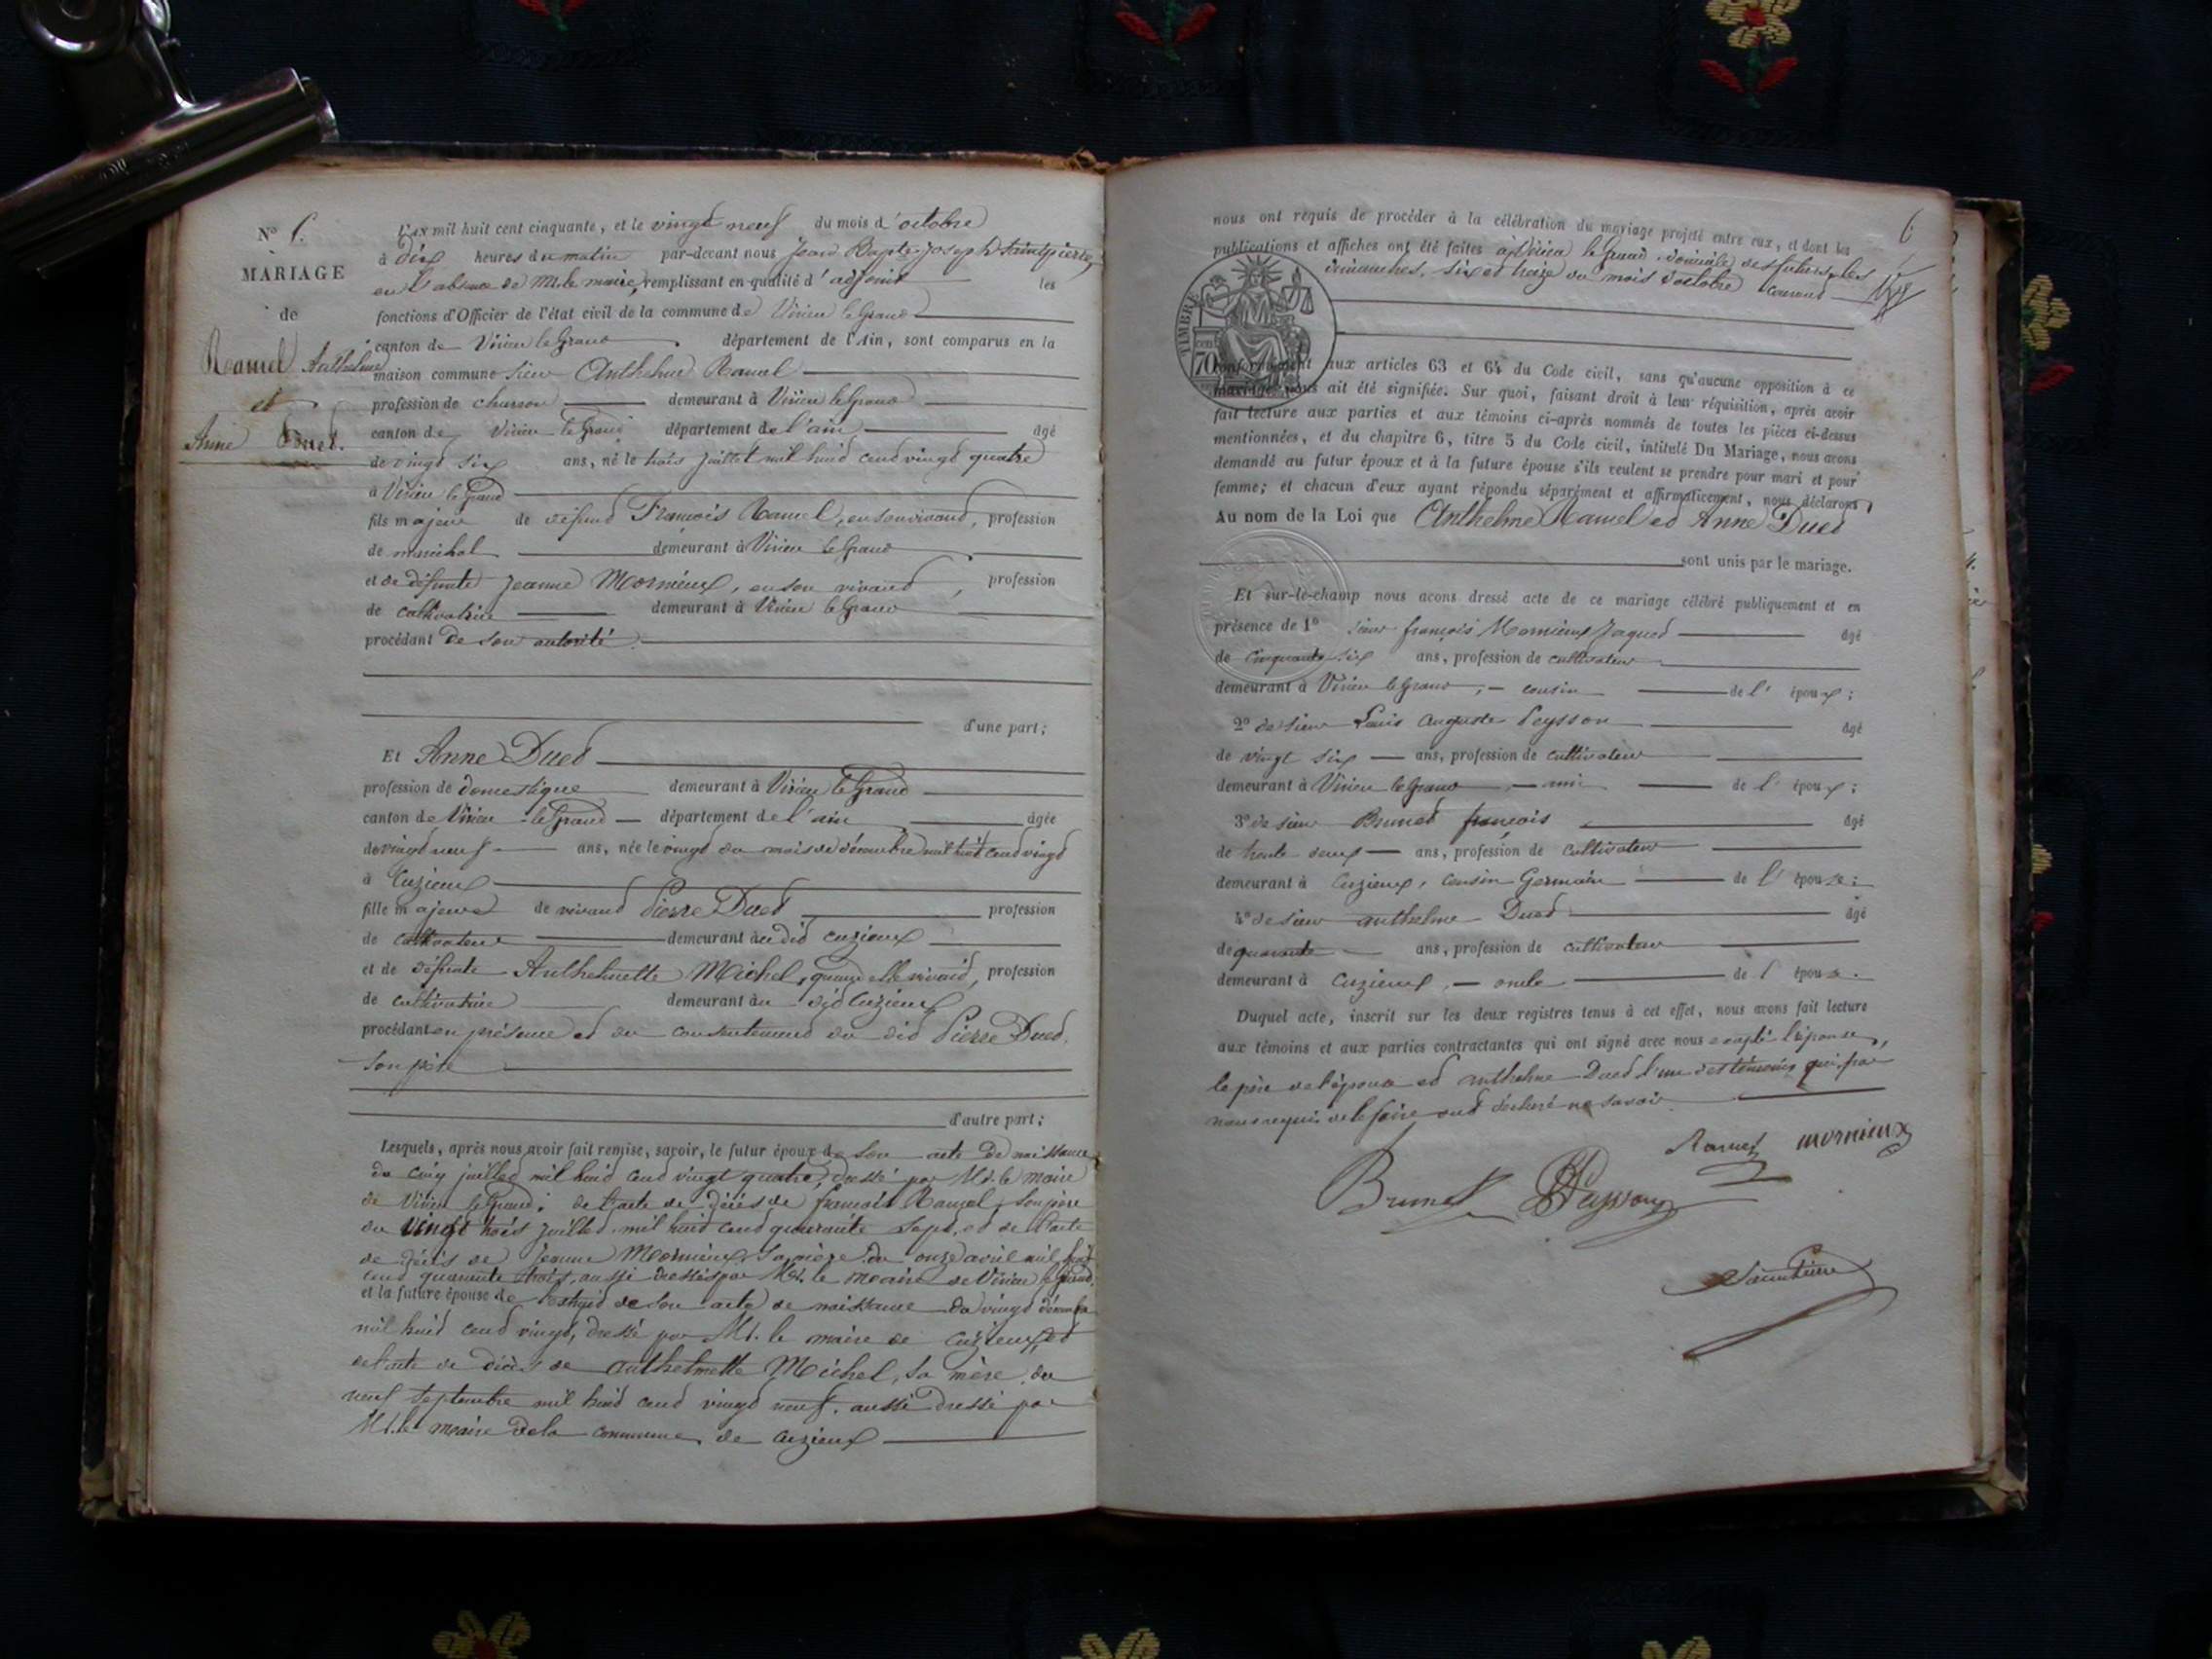 N° 6.
MARIAGE
de
Ramel Anthelme
et
Anne Duet.
L'an mil huit cent cinquante, et le vingt neuf du mois d'octobre
à dix heures du matin par-devant nous Jean Bapte Joseph Saintpierre,
en l'absence de M. le maire, remplissant en qualité d'adjoint les
fonctions d'Officier de l'état civil de la commune de Virieu le Grand
canton de Virieu le Grand département de l'Ain, sont comparus en la
maison commune sieur Anthelme Ramel
profession de charron demeurant à Virieu le Grand
canton de Virieu le Grand département de l'ain âgé
de vingt six ans, né le trois juillet mil huit cent vingt quatre
à Virieu le Grand
fils majeur de défunt François Ramel, en son vivant, profession
de maréchal demeurant à Virieu le Grand
et de défunte Jeanne Mornieux, en son vivant, profession
de cultivatrice demeurant à Virieu le Grand
procédant de son autorité
d'une part;
Et Anne Duet
profession de domestique demeurant à Virieu le Grand
canton de Virieu le Grand département de l'ain âgée
de vingt neuf ans, née le vingt du mois de décembre mil huit cent vingt
à Cuzieux
fille majeure de vivant Pierre Duet profession
de cultivateur demeurant au dit cuzieux
et de défunte Anthelmette Michel, quand elle vivait, profession
de cultivatrice demeurant au dit Cuzieux
procédant en présence et du consentement du dit Pierre Duet,
son père
d'autre part;
Lesquels, après nous avoir fait remise, savoir, le futur époux de son acte de naissance
du cinq juillet mil huit cent vingt quatre, dressé par M. le maire
de Virieu le Grand; de l'acte de décès de françois Ramel, son père
du vingt trois juillet mil huit cent quarante sept, et de l'acte
de décès de Jeanne Mornieux, sa mère du onze avril mil huit
cent quarante trois, aussi dressés par M. le maire de Virieu le Grand,
et la future épouse de l'extrait de son acte de naissance du vingt décembre
mil huit cent vingt, dressé par M. le maire de cuzieux, et
de l'acte de décès de anthelmette Michel, sa mère, du
neuf septembre mil huit cent vingt neuf, aussi dressé par
M. le maire de la commune de cuzieux
6
nous ont requis de procéder à la célébration du mariage projeté entre eux, et dont les
publications et affiches ont été faites à Virieu le Grand domicile des futurs, les
dimanches, six et treize du mois d'octobre courant
TIMBRE
70
conformément aux articles 63 et 64 du Code civil, sans qu'aucune opposition à ce
mariage nous ait été signifiée. Sur quoi, faisant droit à leur réquisition, après avoir
fait lecture aux parties et aux témoins ci-après nommés de toutes les pièces ci-dessus
mentionnées, et du chapitre 6, titre 5 du Code civil, intitulé Du Mariage, nous avons
demandé au futur époux et à la future épouse s'ils veulent se prendre pour mari et pour
femme; et chacun d'eux ayant répondu séparément et affirmativement, nous déclarons
Au nom de la Loi que Anthelme Ramel et Anne Duet
sont unis par le mariage.
Et sur-le-champ nous avons dressé acte de ce mariage célébré publiquement et en
présence de 1° sieur françois Mornieux Jaques âgé
de cinquante six ans, profession de cultivateur
demeurant à Virieu le Grand, cousin de l'époux;
2° de sieur Louis Auguste Peysson âgé
de vingt six ans, profession de cultivateur
demeurant à Virieu le Grand, ami de l'époux;
3° de sieur Brunet françois âgé
de trente deux ans, profession de cultivateur
demeurant à Cuzieux, cousin Germain de l'épouse;
4° de sieur anthelme Duet âgé
de quarante ans, profession de cultivateur
demeurant à Cuzieux, oncle de l'épouse.
Duquel acte, inscrit sur les deux registres tenus à cet effet, nous avons fait lecture
aux témoins et aux parties contractantes qui ont signé avec nous excepté l'épouse,
le père de l'épouse et anthelme Duet l'un des témoins qui, par
nous requis de le faire ont déclaré ne savoir
Ramel mornieux
Brunet Peysson
Saintpierre